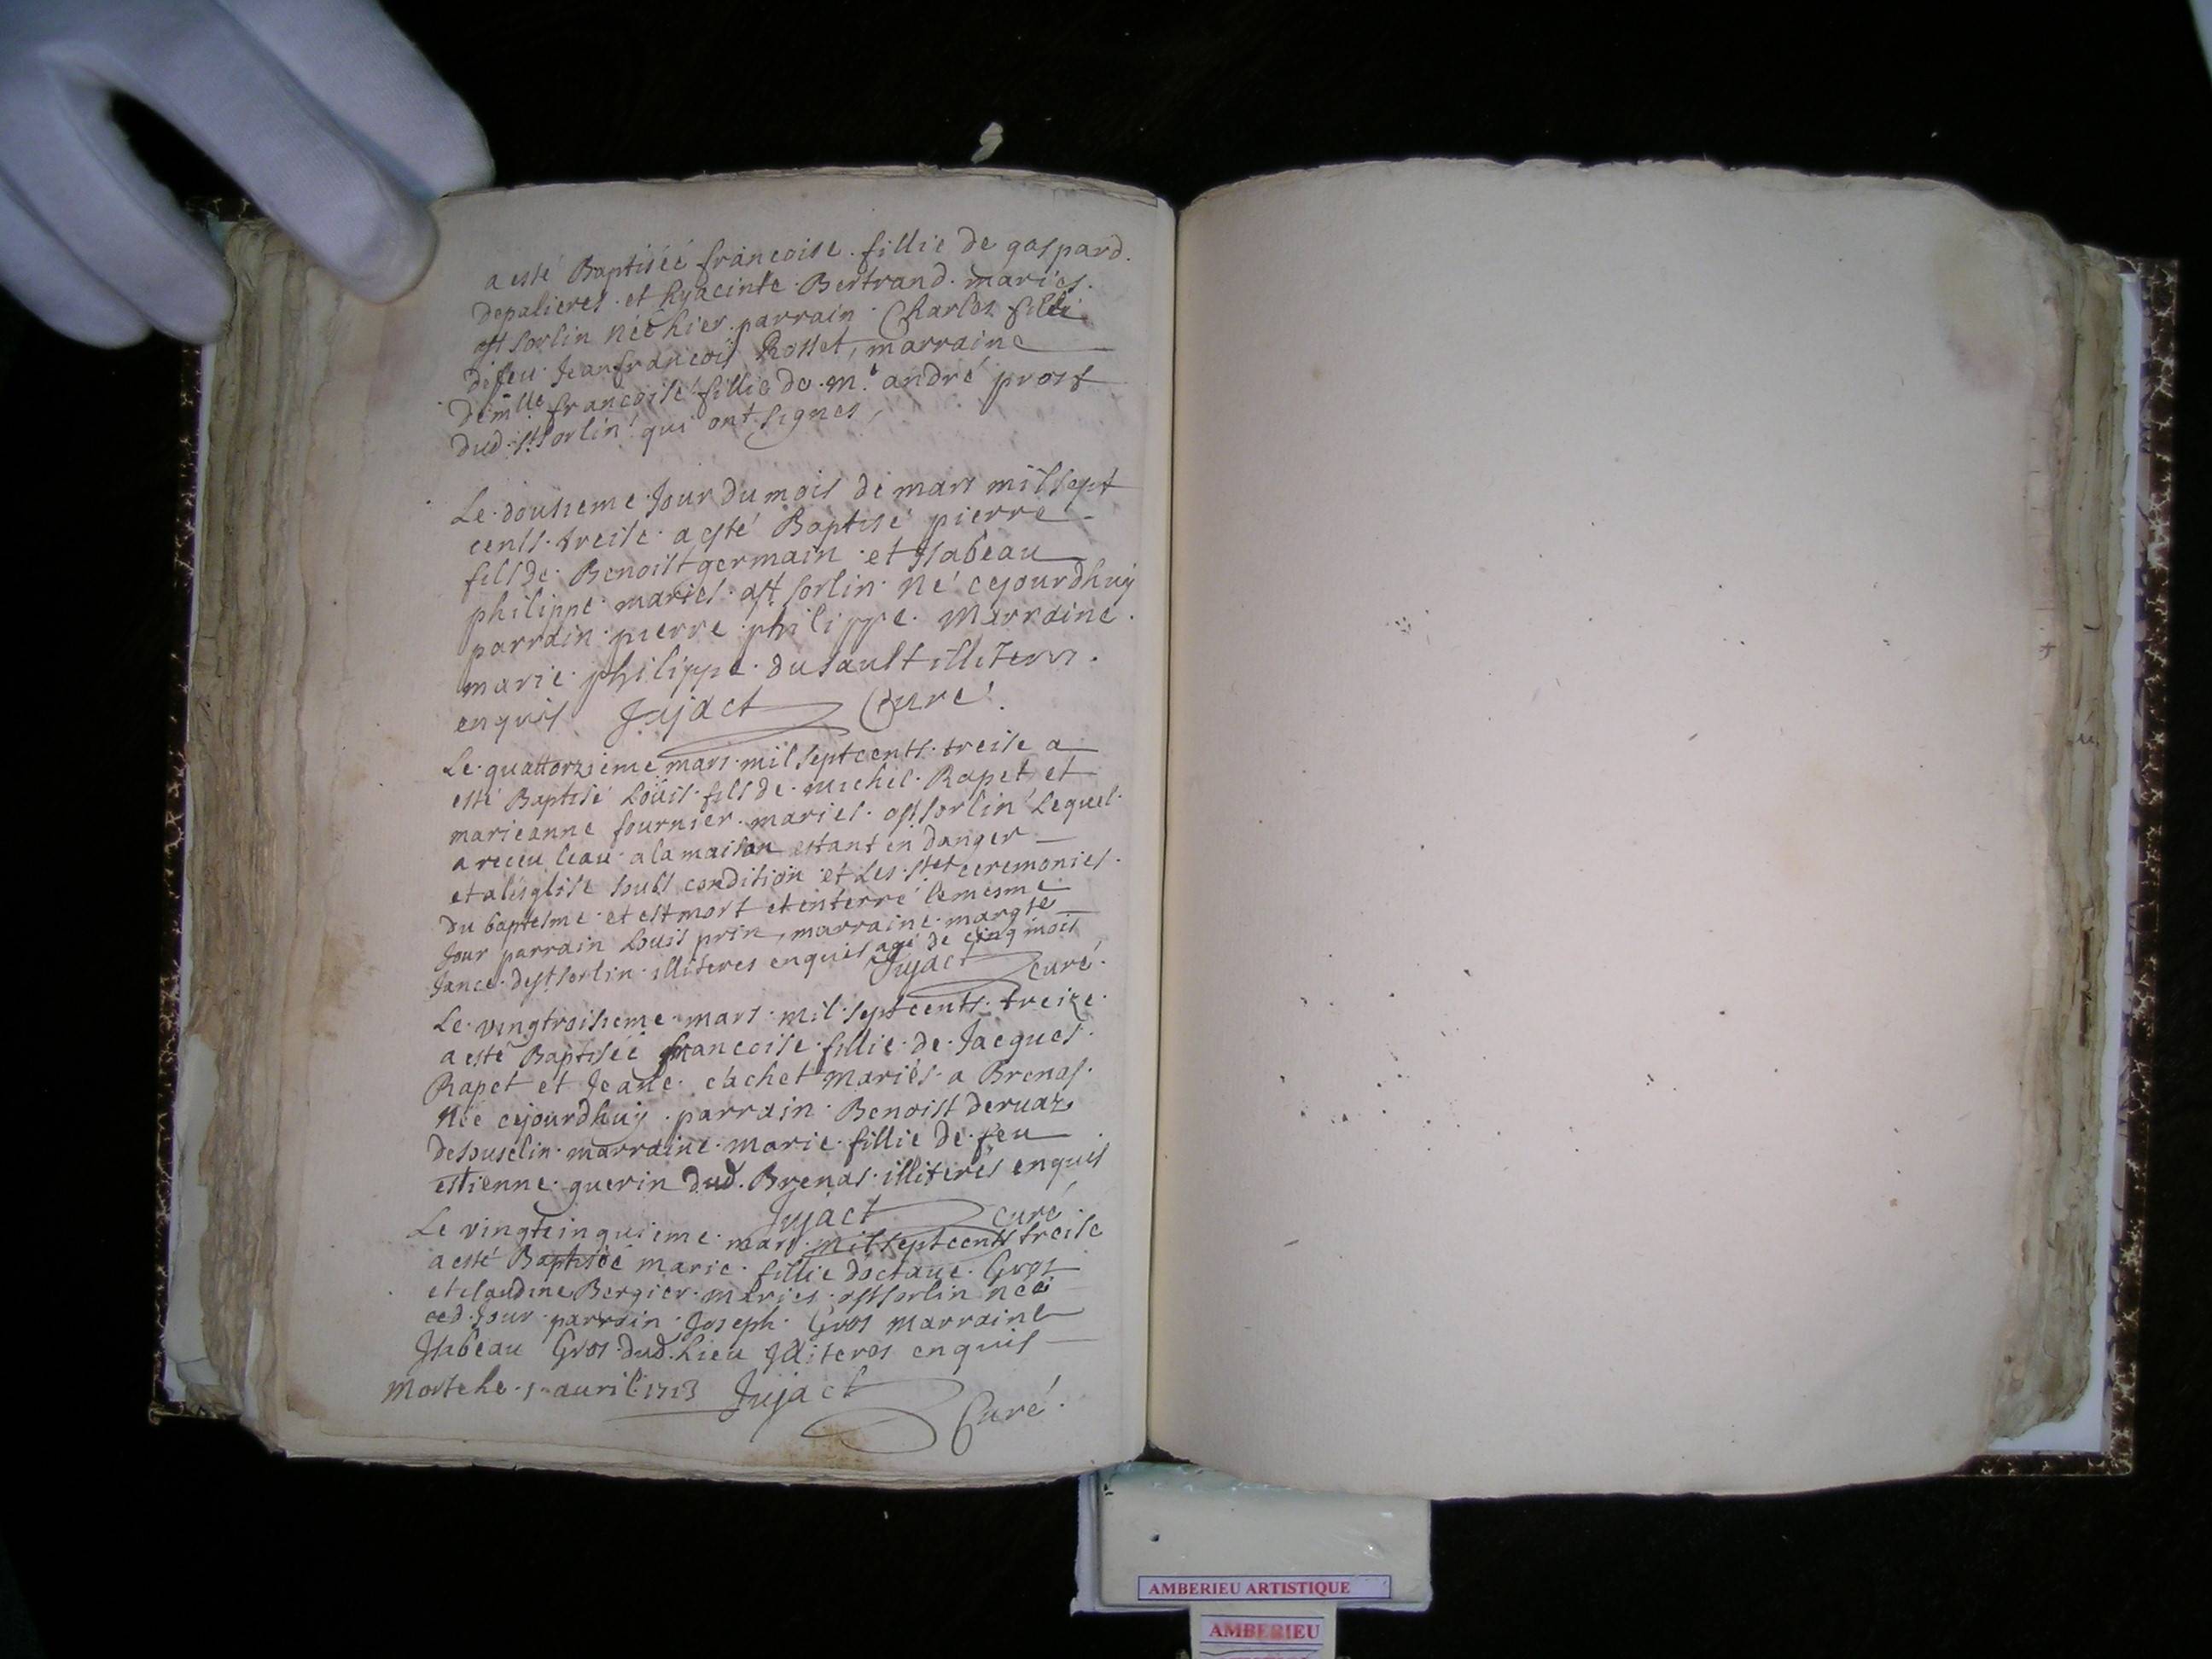 a esté Baptiséé francoise. fillie de gaspard.
depalieres. et hyacinte. Bertrand. mariés.
a st sorlin néé hier. parrain. Charles fils
de feu. Jeanfrancois Rosset, marraine
demlle francoise fillie de. me. andré prost
dud. st. sorlin qui ont signes,
Le. dousieme. Jour du mois de mars mil sept
cents. treise. a esté Baptisé pierre
fils de. Benoist germain. et Isabeau
philippe. mariés. a st. sorlin. Né cejourdhuy
parrain. pierre. philippe. Marraine.
marie. philippe. du sault illiteres.
enquis Jujact Curé.
Le. quattorzieme mars. mil sept cents. treise a
esté Baptisé Loüis. fils de. michel. Rapet et
marieanne fournier. mariés. a st sorlin Lequel.
a receu leau. a la maison estant en danger
et a lésglise soubs condition et Les. stes ceremonies.
du baptesme. et est mort et enterré le mesme
Jour parrain Louis prin, marraine. margte
Jance. de st. sorlin. illiteres enquis agé de cinq mois
Jujact curé.
Le. vingtroisieme. mars. mil. sept cents. treize.
a esté Baptiséé francoise. fillie. de. Jacques.
Rapet et Jeane. cachet mariés. a Brenas.
Néé cejourdhuy. parrain. Benoist deruaz
de souselin. marraine. marie. fillie de. feu
estienne. guerin dud. Brenas. illiterés enquis
Jujact curé.
Le vingtcinquieme. mars. mil sept cents treise
a esté Baptiséé marie. fillie doctaue. Gros
et claudine Bergier. mariés. a st sorlin néé
ced. Jour. parrain. Joseph. Gros marraine
Isabeau Gros. dud. Lieu Illiteres enquis
Morte le. 1er auril. 1713 Jujact
Curé.
AMBERIEU ARTISTIQUE
AMBERIEU